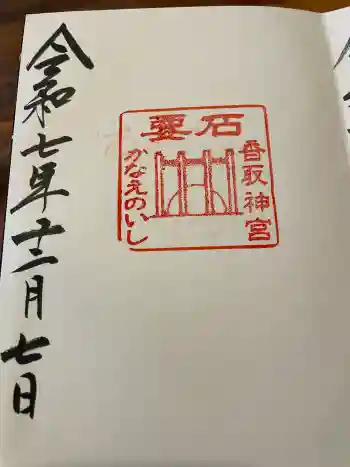 要石
香取神宮
かなえのいし
令和七年十二月七日